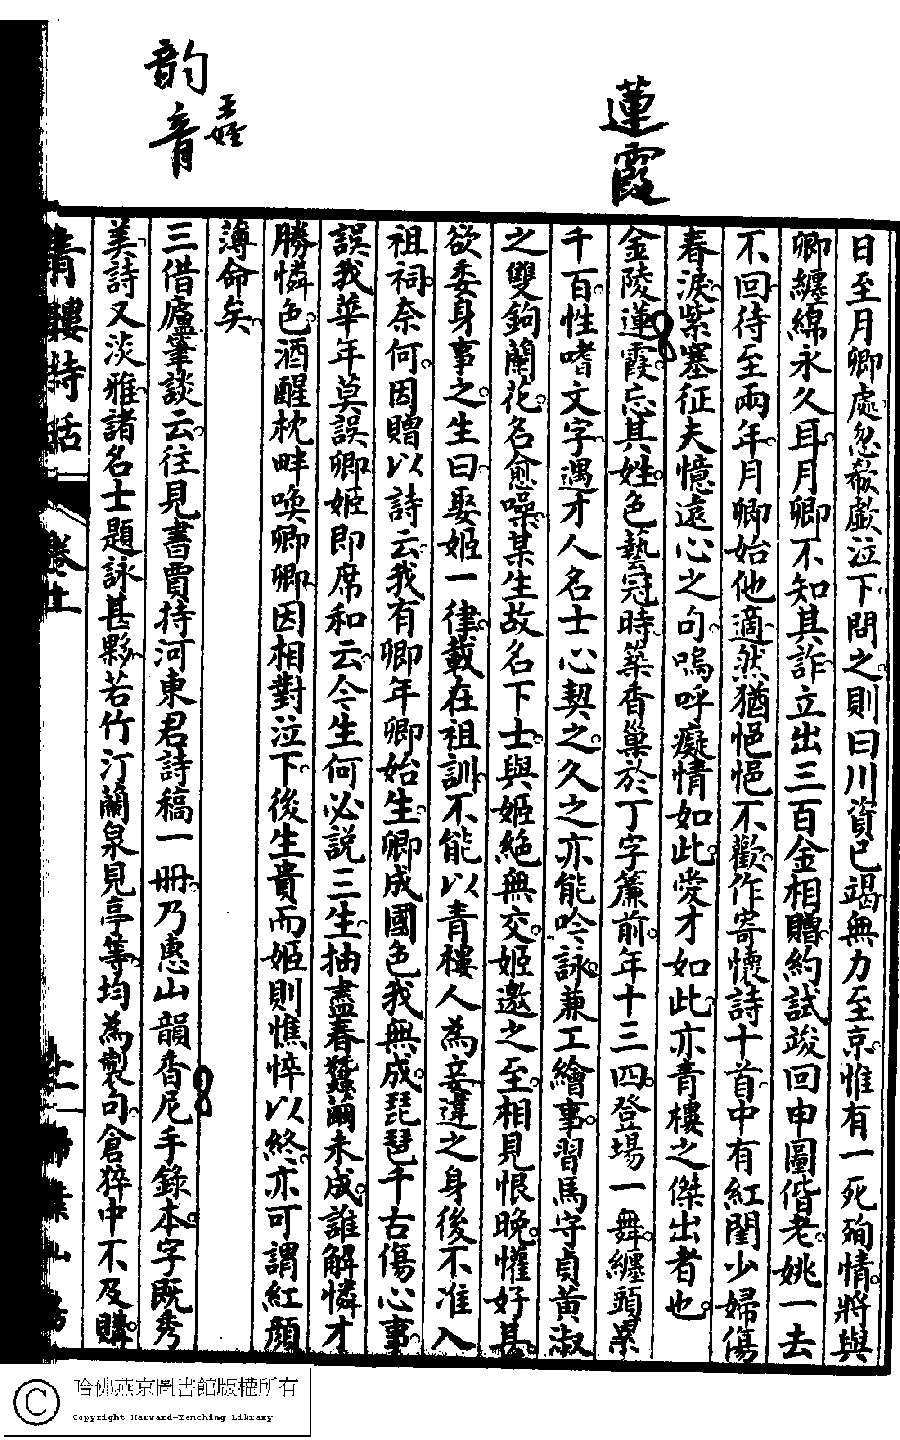 蓮霞
韵音
王姪
日至月卿處忽欷歔泣下問之則曰川資已竭無力至京惟有一死殉情將與
卿纏綿永久耳月卿不知其詐立出三百金相贈約試竣回申圖偕老姚一去
不回待至兩年月卿始他適然猶悒悒不歡作寄懷詩十首中有紅閨少婦傷
春淚紫塞征夫憶遠心之句嗚呼癡情如此愛才如此亦青樓之傑出者也
金陵蓮霞忘其姓色藝冠時築香巢於丁字簾前年十三四登場一舞纏頭累
千百性嗜文字遇才人名士心契之久之亦能吟詠兼工繪事習馬守貞黃淑
之雙鉤蘭花名愈噪某生故名下士與姬絕無交姬邀之至相見恨晚懽好甚
欲委身事之生曰娶姬一律載在祖訓不能以青樓人為妾違之身後不准入
祖祠奈何因贈以詩云我有卿年卿始生卿成國色我無成琵琶千古傷心事
誤我華年莫誤卿姬即席和云今生何必說三生抽盡春蠶繭未成誰解憐才
勝憐色酒醒枕畔喚卿卿因相對泣下後生貴而姬則憔悴以終亦可謂紅顏
薄命矣
三借廬筆談云往見書賈持河東君詩稿一冊乃惠山韻香尼手錄本字既秀
美詩又淡雅諸名士題詠甚夥若竹汀蘭泉見亭等均為製句倉猝中不及購
青樓詩話
卷廿
哈佛燕京圖書館版權所有
Copyright Harvard-Yenching Library